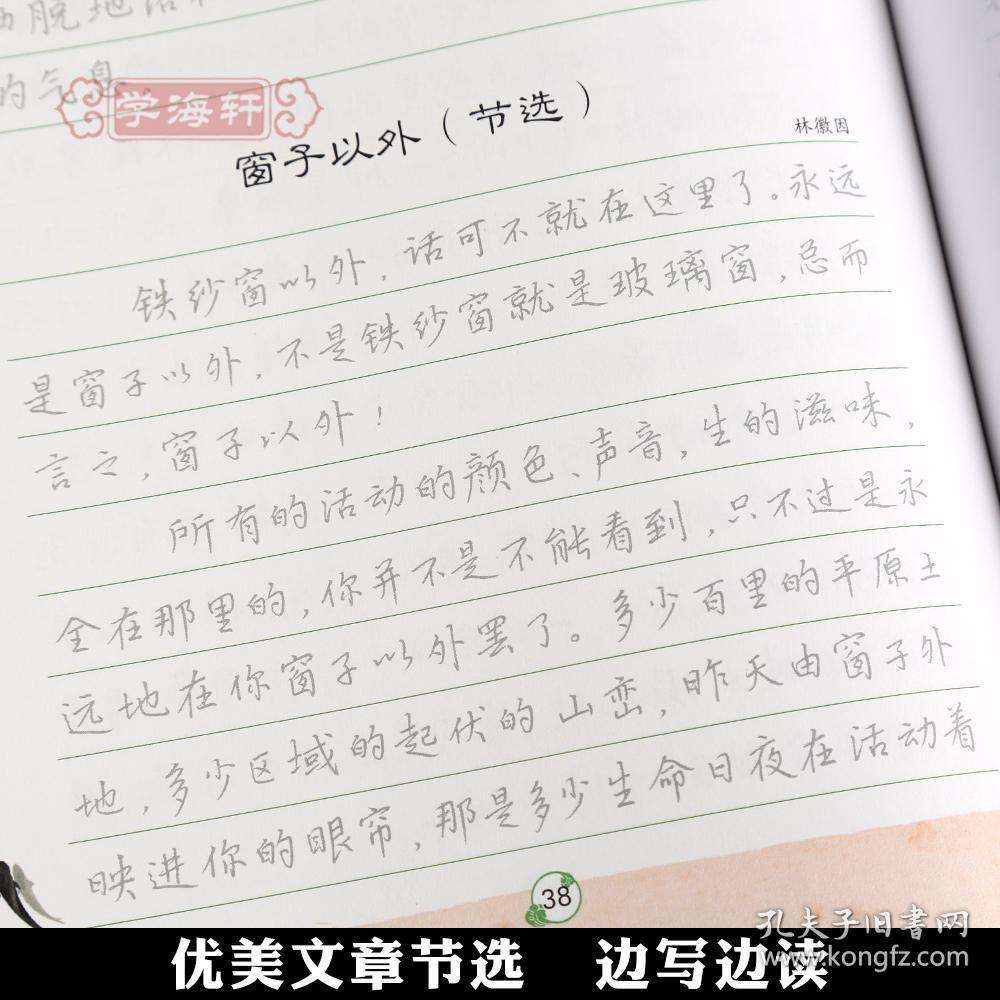 脱地活
的气息。
学海轩
窗子以外（节选）
林徽因
铁纱窗以外，话可不就在这里了。永远
是窗子以外，不是铁纱窗就是玻璃窗，总而
言之，窗子以外！
所有的活动的颜色、声音，生的滋味，
全在那里的，你并不是不能看到，只不过是永
远地在你窗子以外罢了。多少百里的平原土
地，多少区域的起伏的山峦，昨天由窗子外
映进你的眼帘，那是多少生命日夜在活动着
38
孔夫子旧书网
www.kongfz.com
优美文章节选 边写边读